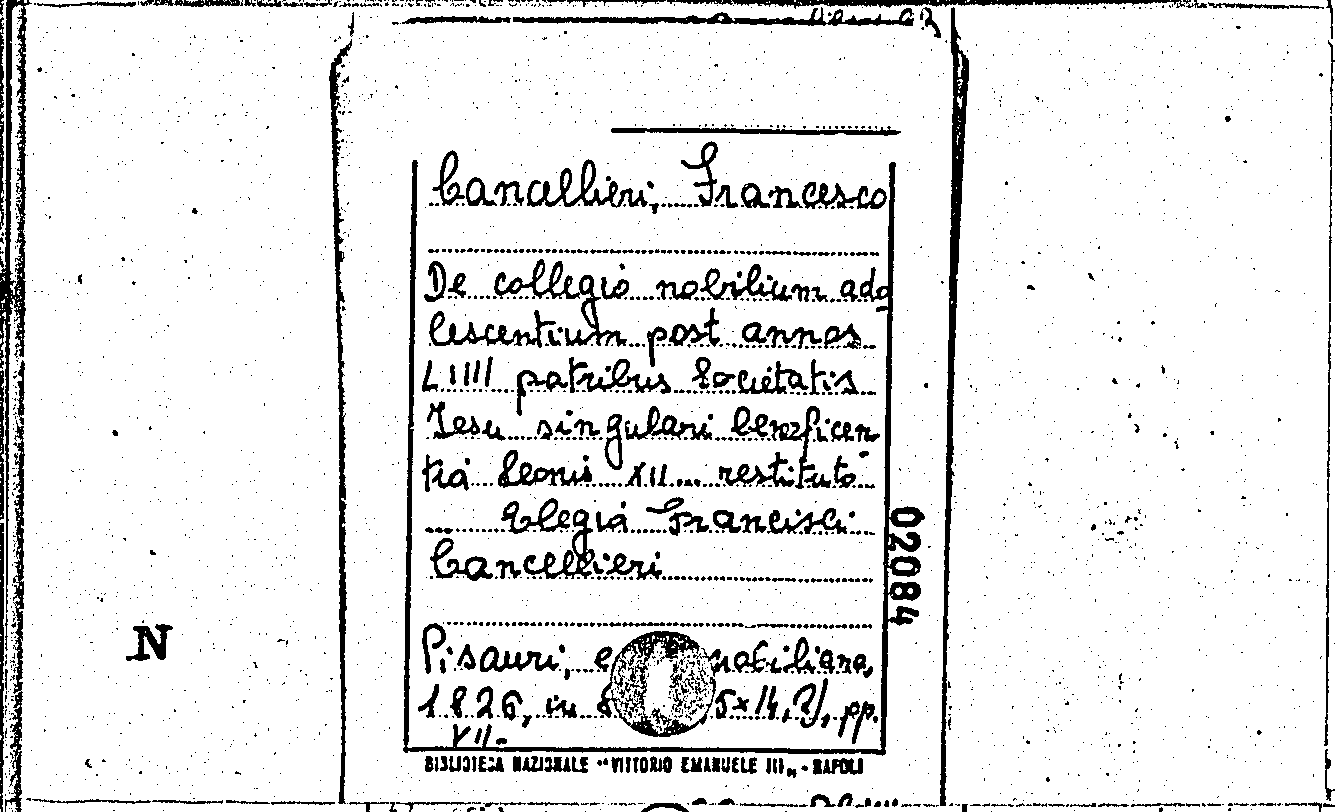 Cancellieri, Francesco
De collegio nobilium ado
lescentium post annos
LIIII patribus Societatis
Iesu singulari beneficen
tia Leonis XII... restituto
... Elegia Francisci
Cancellieri
Pisauri, nobiliana,
1826, in 5x14,2), pp.
VII-
BIBLIOTECA NAZIONALE "VITTORIO EMANUELE III" - NAPOLI
02084
N